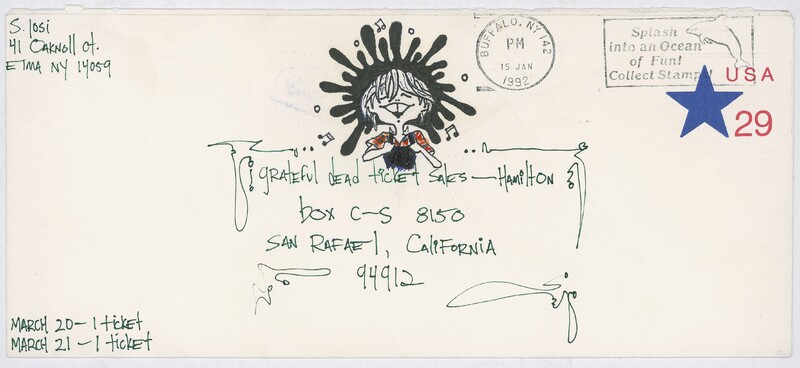 S. Iosi
41 Oaknoll ct.
ElMA NY 14059
BUFFALO, NY 142
PM
15 JAN
1992
Splash
into an Ocean
of Fun!
Collect Stamps!
USA
29
grateful dead ticket sales — Hamilton
box C-S 8150
SAN RAFAEl, CAliFORNIA
94912
MARCH 20 - 1 ticket
MARCH 21 - 1 ticket